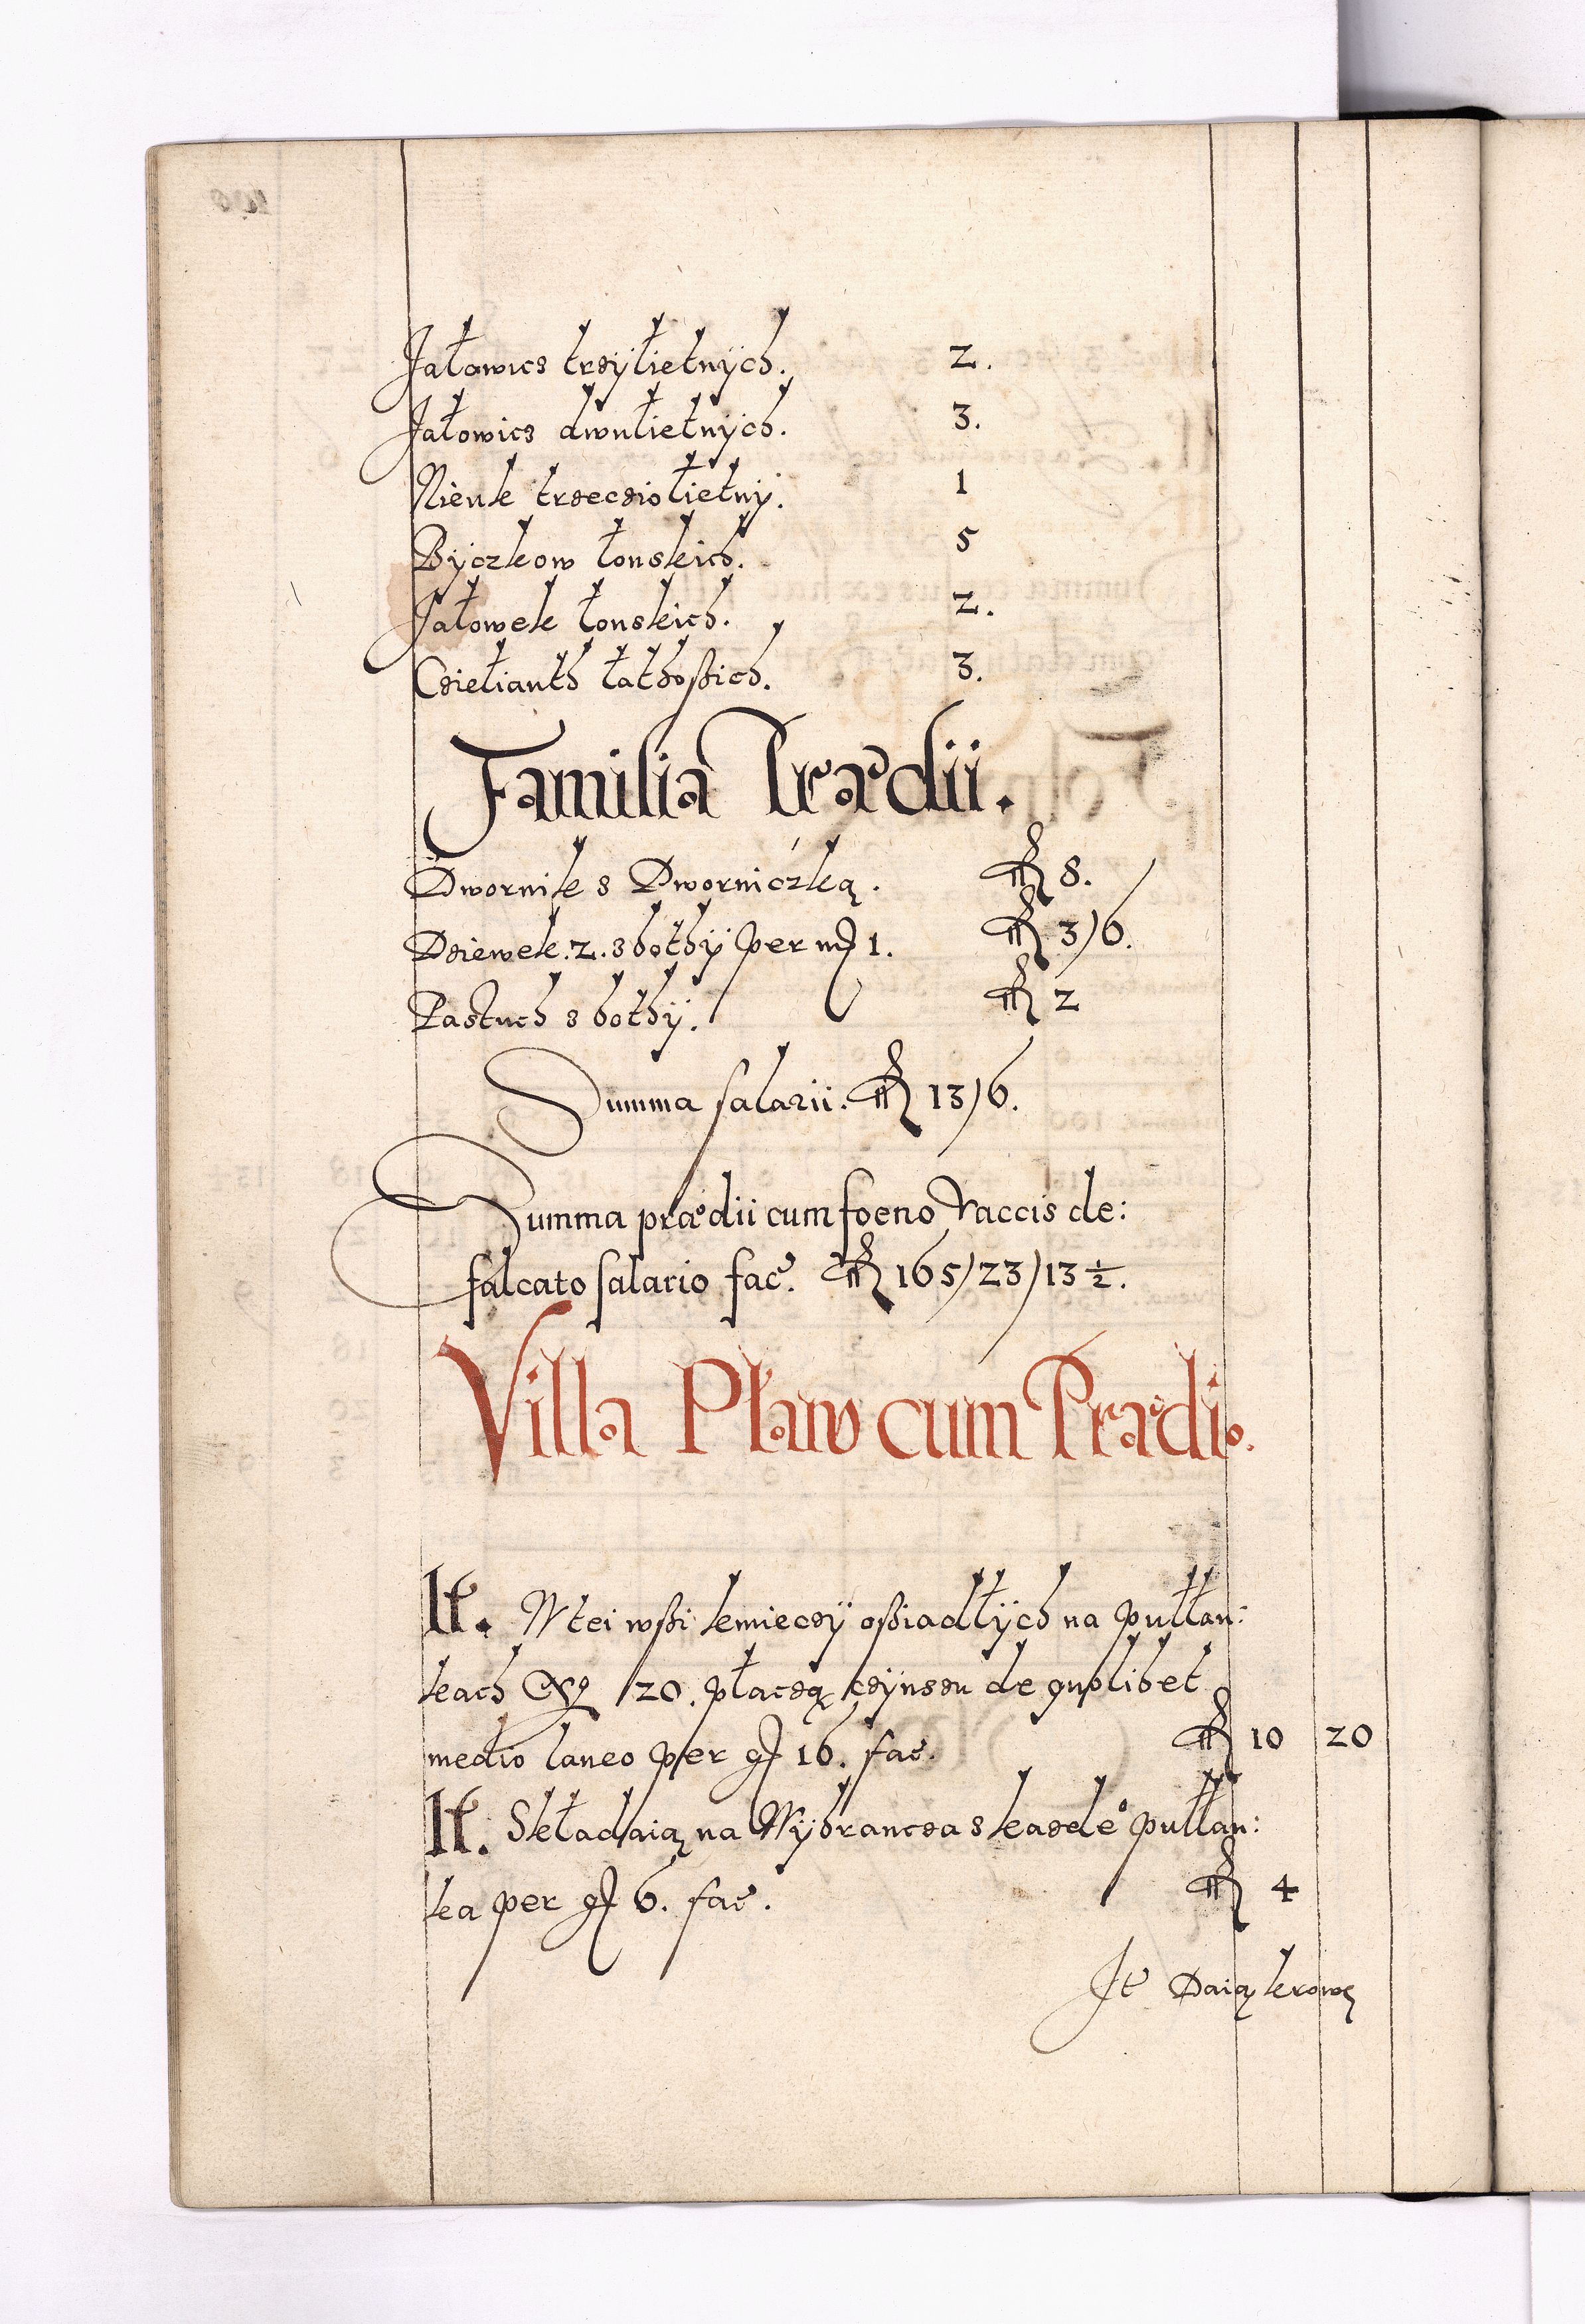 Jałowicz trzÿłietnÿch. 2.
Jałowicz dwułietnÿch. 3.
Nienk trzecziołietnÿ. 1
Bÿczkow łonskich. 5
Jałowek łonskich. 2.
Czielianth łathoßich. 3.
Familia Prædii.
Dwornik z Dworniczką. 8.
Dziewek. 2. z bothÿ per 1. 3)6.
Pastuch z bothÿ. 2
Summa salarii. 13)6.
Summa prædii cum foeno Vaccis de:
falcato salario fac. 165)23)13 ½.
Villa Pław cum Prædio.
It. W tei wßi kmieczÿ oßiadłÿch na pułłan:
kach No 20. płaczą czÿnszu de quolibet
medio laneo per g 16. fac. 10 20
It. Składaią na Wÿbrancza z kazdé pułłan:
ka per g 6. fac. 4
It Daią krowę